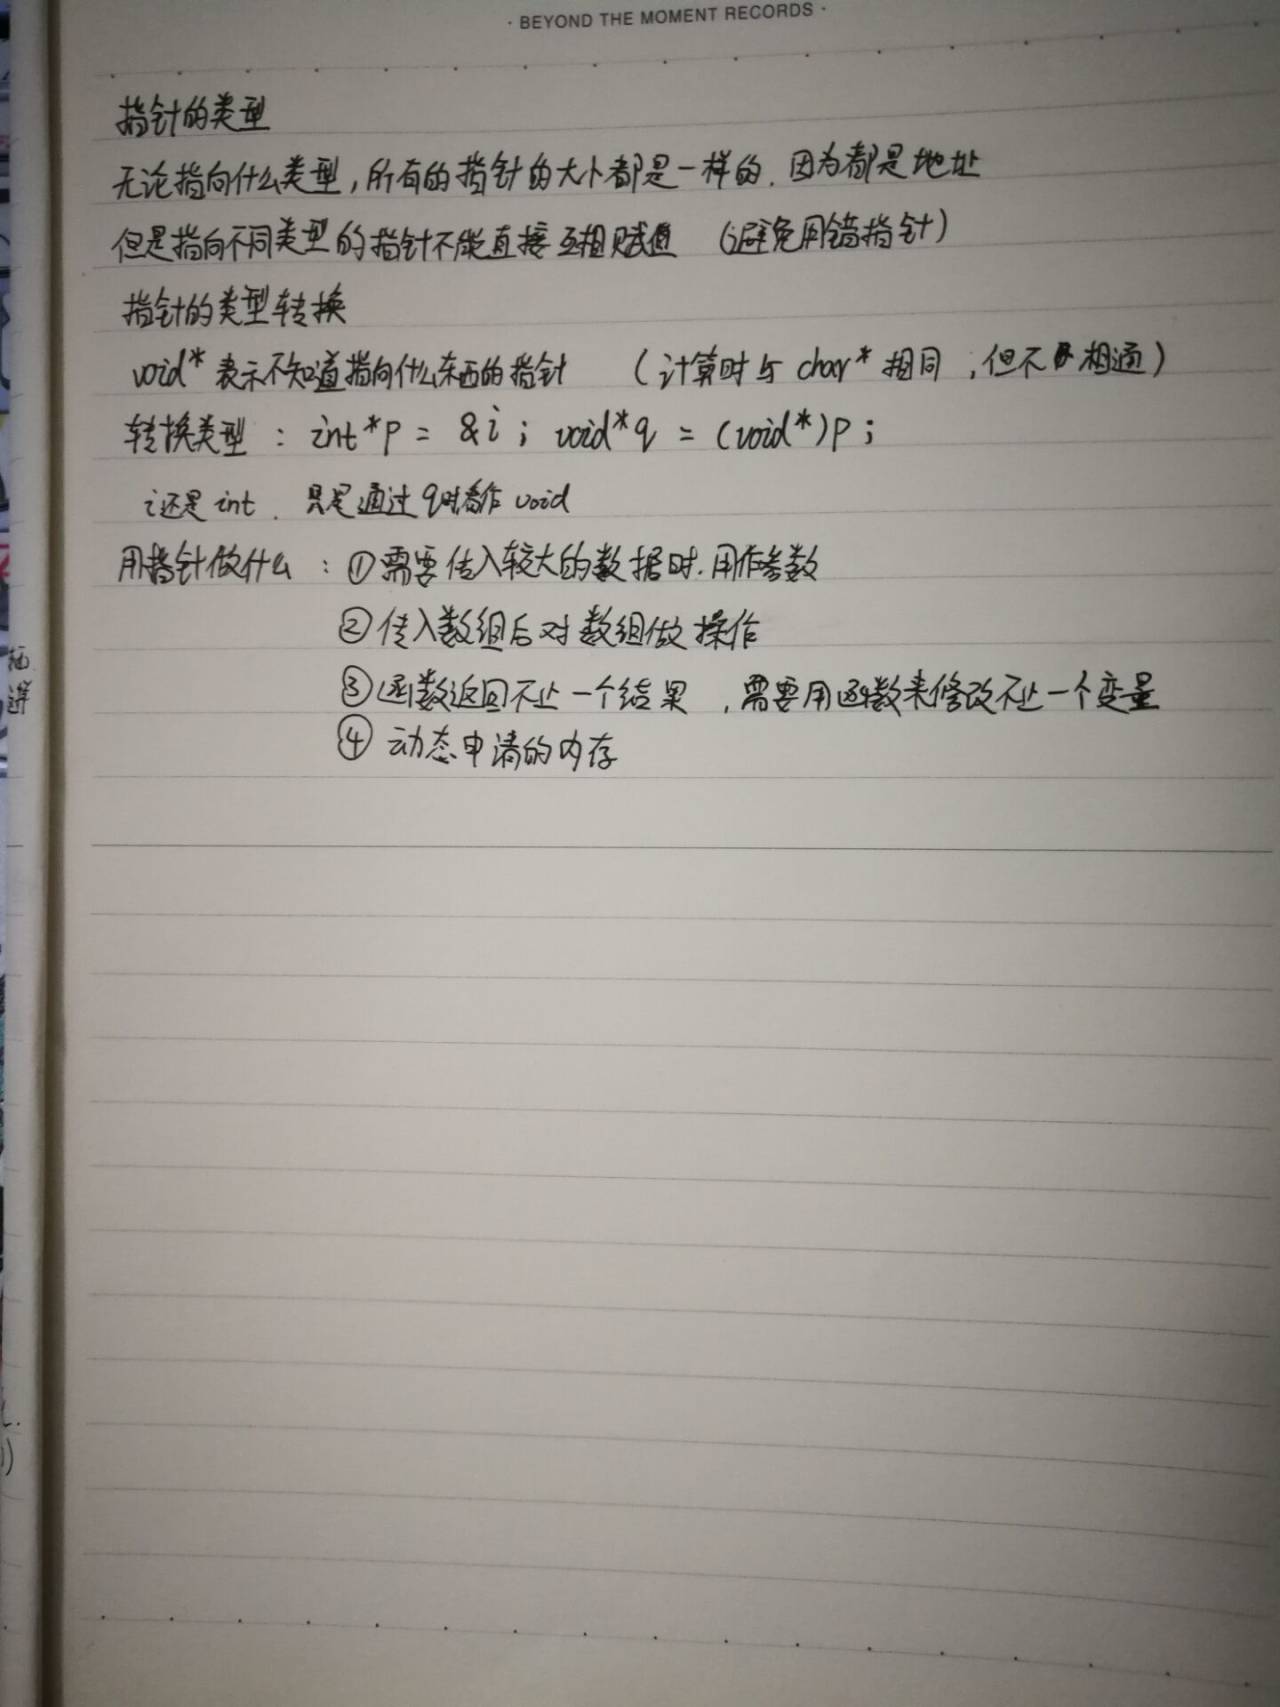 · BEYOND THE MOMENT RECORDS ·
指针的类型
无论指向什么类型，所有的指针的大小都是一样的．因为都是地址
但是指向不同类型的指针不能直接互相赋值 （避免用错指针）
指针的类型转换
void* 表示不知道指向什么东西的指针 （计算时与 char* 相同，但不相通）
转换类型：int*p = &i；void*q = (void*)p；
i还是int．只是通过q时看作void
用指针做什么：①需要传入较大的数据时．用作参数
②传入数组后对数组做操作
③函数返回不止一个结果，需要用函数来修改不止一个变量
④动态申请的内存